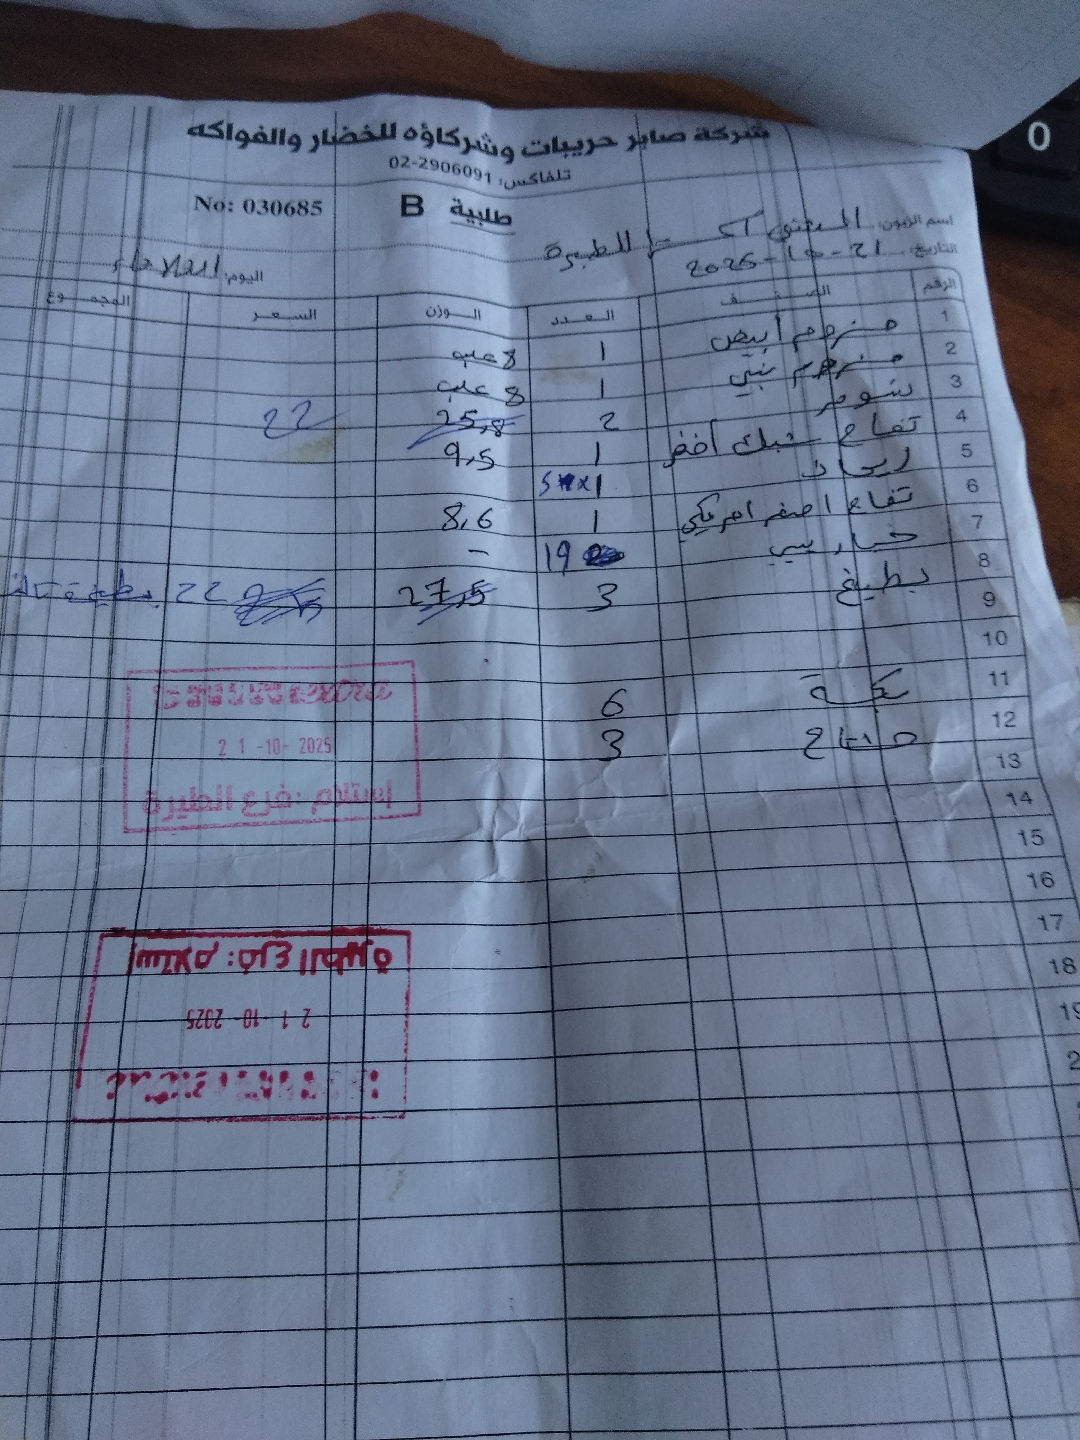 شركة صابر حريبات وشركاؤه للخضار والفواكه
تلفاكس: 02-2906091
No: 030685 طلبية B
اسم الزبون: الطيرة
التاريخ: 21-10-2025 اليوم: الثلاثاء
الرقم الصنف العدد الوزن السعر المجموع
1 مشروم أبيض 1 8 علب
2 مشروم بني 1 8 علب
3 شومر 2 25,8 22
4 تفاح أخضر 1 9,5
5 1
6 تفاح اصفر امريكي 1 8,6
7 خيار بيبي 19 -
8 بطيخ 3 27,5 22
9
10
11 6
12 3
13
14
15
16
17
18
21-10-2025
إستلام: فرع الطيرة
إستلام: فرع الطيرة
21-10-2025
0